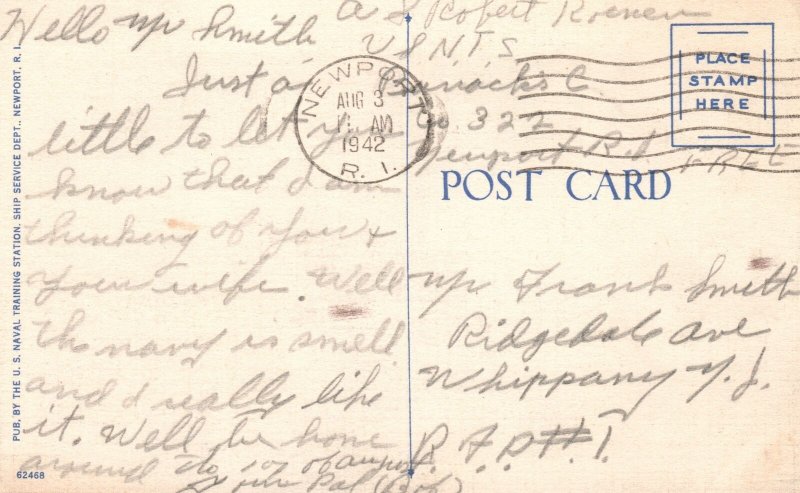 Hello Mr Smith
Just a
little to let you
know that I am
thinking of you +
your wife. Well
the navy is smell
and I really like
it. Well be home
around the 10 of august
Your Pal (Bob)
A S Robert
U S N T S
Barracks C
322
Newport R.I.
FREE
NEWPORT
AUG 3
11 AM
1942
R. I.
PLACE
STAMP
HERE
POST CARD
Mr Frank Smith
Ridgedale Ave
Whippany N.J.
R.F.D #1
PUB. BY THE U. S. NAVAL TRAINING STATION. SHIP SERVICE DEPT., NEWPORT, R. I.
62468